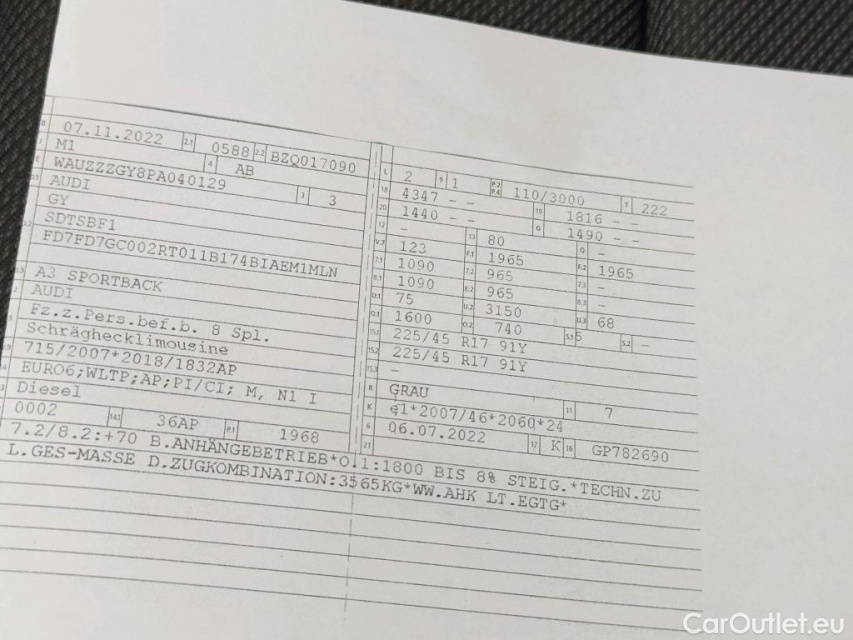 07.11.2022 2.1 0588 2.2 BZQ017090
M1 4 AB
WAUZZZGY8PA040129 3 3
AUDI
GY
SDTSBF1
FD7FD7GC002RT011B174BIAEM1MLN
A3 SPORTBACK
AUDI
Fz.z.Pers.bef.b. 8 Spl.
Schräghecklimousine
715/2007*2018/1832AP
EURO6;WLTP;AP;PI/CI; M, N1 I
Diesel
0002 14.1 36AP P.1 1968
L 2 9 1 P.2 P.4 110/3000 T 222
18 4347 - - 19 1816 - -
20 1440 - - G 1490 - -
12 - 13 80 Q -
V.7 123 F.1 1965 F.2 1965
7.1 1090 7.2 965 7.3 -
8.1 1090 8.2 965 8.3 -
U.1 75 U.2 3150 U.3 68
O.1 1600 O.2 740 S.1 5 S.2 -
15.1 225/45 R17 91Y
15.2 225/45 R17 91Y
15.3 -
R GRAU 11 7
K e1*2007/46*2060*24
6 06.07.2022 17 K 16 GP782690
21
7.2/8.2:+70 B.ANHÄNGEBETRIEB*O.1:1800 BIS 8% STEIG.*TECHN.ZU
L.GES-MASSE D.ZUGKOMBINATION:3565KG*WW.AHK LT.EGTG*
CarOutlet.eu